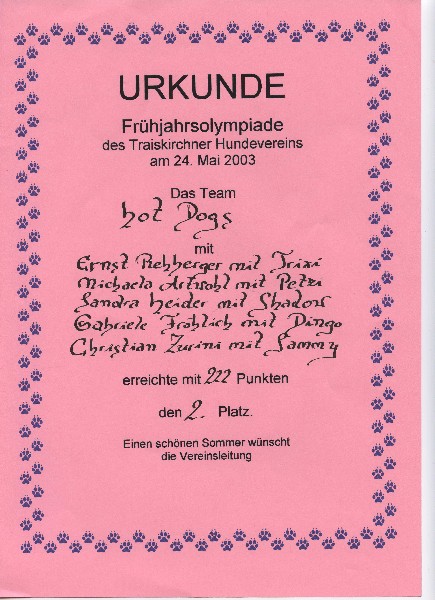 URKUNDE
Frühjahrsolympiade
des Traiskirchner Hundevereins
am 24. Mai 2003
Das Team
hot Dogs
mit
Ernst Rehberger mit Trixi
Michaela mit Petzi
Sandra Heider mit Shadow
Gabriele Fröhlich mit Dingo
Christian Zurini mit Sammy
erreichte mit 222 Punkten
den 2. Platz.
Einen schönen Sommer wünscht
die Vereinsleitung